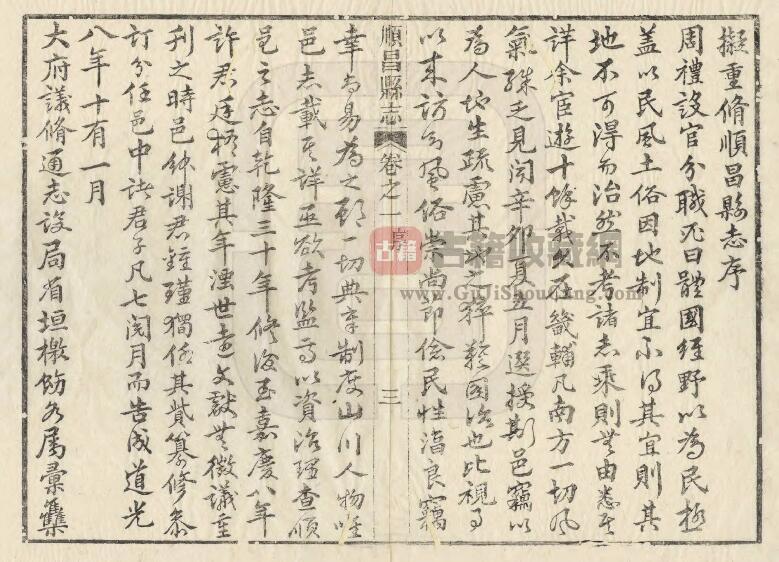 擬重脩順昌縣志序
周禮設官分職aborg曰體國經野以為民極
盖以民風土俗因地制宜不得其宜則其
地不可得而治然不考諸志乘則無由悉其
詳余宦遊十餘載多在畿輔凡南方一切風
氣殊乏見聞辛卯夏五月選授斯邑竊以
為人地生疏慮其驟難圖治也比視事
以來訪知風俗崇尚節儉民性淳良竊
幸為易為之顧一切典章制度山川人物唯
邑志載其詳亟欲考鑒焉以資治理查順
邑之志自乾隆三十年修後至嘉慶八年
許君廷梧慮其年湮世遠文獻無徵議重
刋之時邑紳謝君鍾瑾獨仔其貲纂修叅
訂分任邑中諸君子凡七閱月而告成道光
八年十有一月
大府議脩通志設局省垣檄飭各屬彙集
順昌縣志 卷之一 序
三
古籍
古籍收藏網
www.GuJiShouCang.com